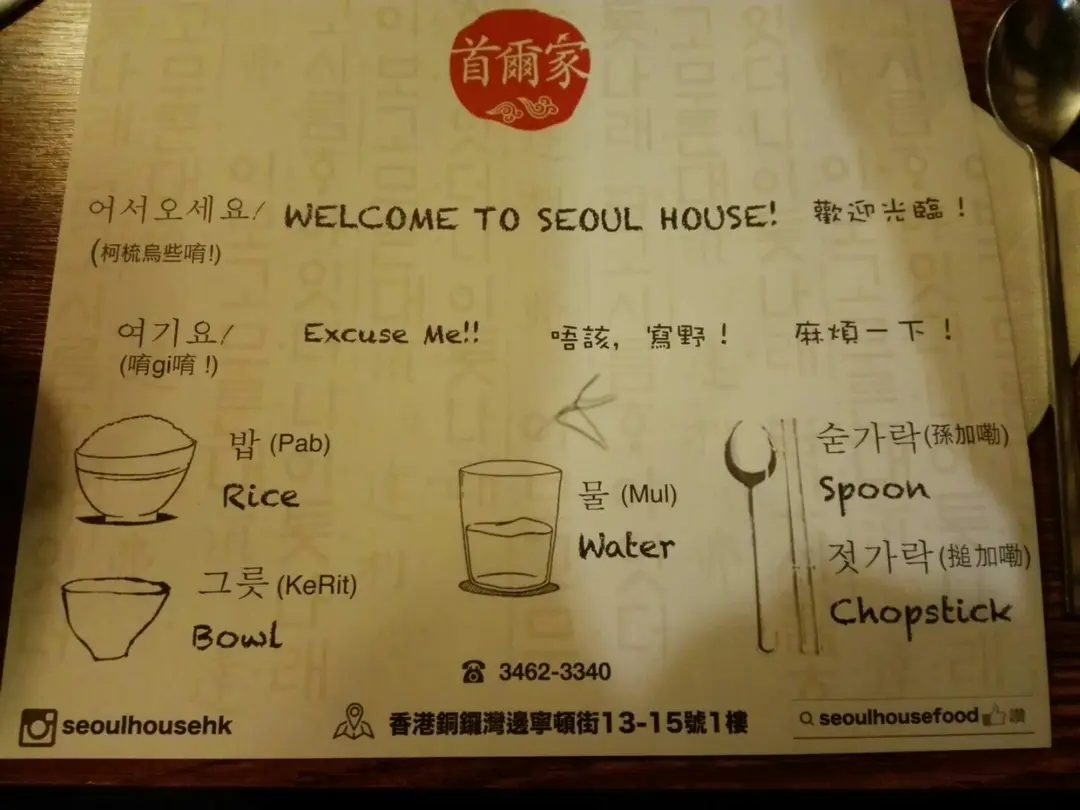 首爾家
어서오세요! WELCOME TO SEOUL HOUSE! 歡迎光臨！
(柯梳烏些唷!)
여기요! Excuse Me!! 唔該，寫野！ 麻煩一下！
(唷gi唷 !)
밥 (Pab)
Rice
그릇 (KeRit)
Bowl
물 (Mul)
Water
숟가락(孫加嘞)
Spoon
젓가락(搥加嘞)
Chopstick
3462-3340
seoulhousehk
香港銅鑼灣邊寧頓街13-15號1樓
seoulhousefood 讚